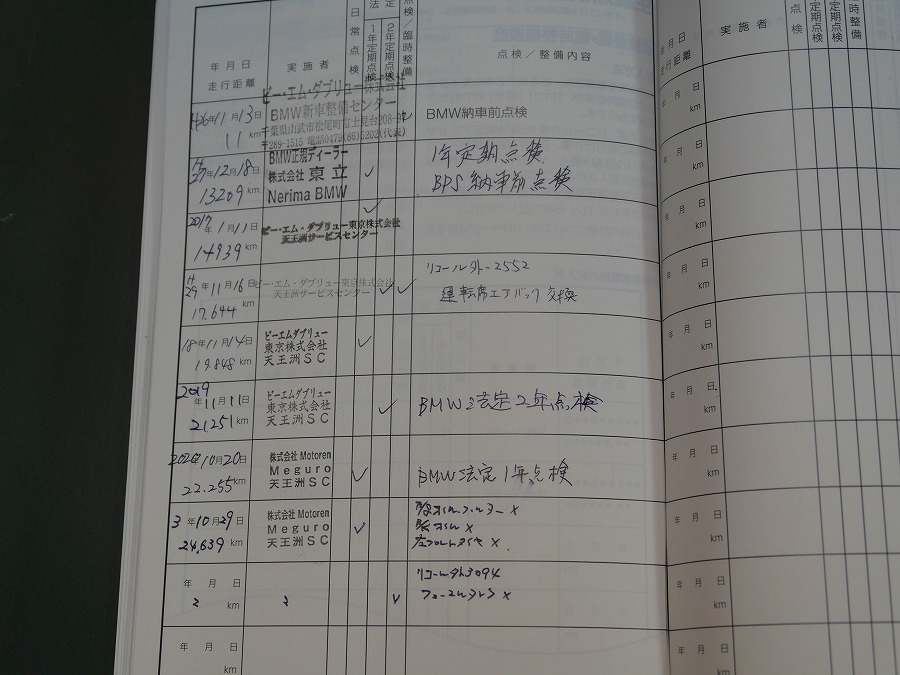 年 月 日
走行距離
実 施 者
日常点検
法定
1年定期点検
2年定期点検
点検/臨時整備
点検 / 整備内容
H26年11月13日
11 km
ビー・エム・ダブリュー株式会社
BMW新車整備センター
千葉県山武市松尾町富士見台208-9
〒289-1515 電話0479(86)5202(代表)
BMW納車前点検
12月18日
13209 km
BMW正規ディーラー
株式会社 東立
Nerima BMW
1年定期点検
BPS 納車前点検
2017年1月11日
14939 km
ビー・エム・ダブリュー東京株式会社
天王洲サービスセンター
H29年11月16日
17,644 km
ビー・エム・ダブリュー東京株式会社
天王洲サービスセンター
リコール外-2552
運転席エアバック交換
18年11月14日
19848 km
ビーエムダブリュー
東京株式会社
天王洲SC
2019年11月1日
21,251 km
ビーエムダブリュー
東京株式会社
天王洲SC
BMW法定2年点検
2020年10月20日
22,255 km
株式会社 Motoren
Meguro
天王洲SC
BMW法定1年点検
3年10月29日
24,639 km
株式会社 Motoren
Meguro
天王洲SC
オイル x
左フロントタイヤ x
年 月 日
km
リコール外3094
x
年 月 日
km
年 月 日
走行距離
実 施 者
定期点検
定期点検
臨時整備
年 月 日
km
年 月 日
km
年 月 日
km
年 月 日
km
年 月 日
km
年 月 日
km
年 月 日
km
年 月 日
km
年 月 日
km
年 月 日
km